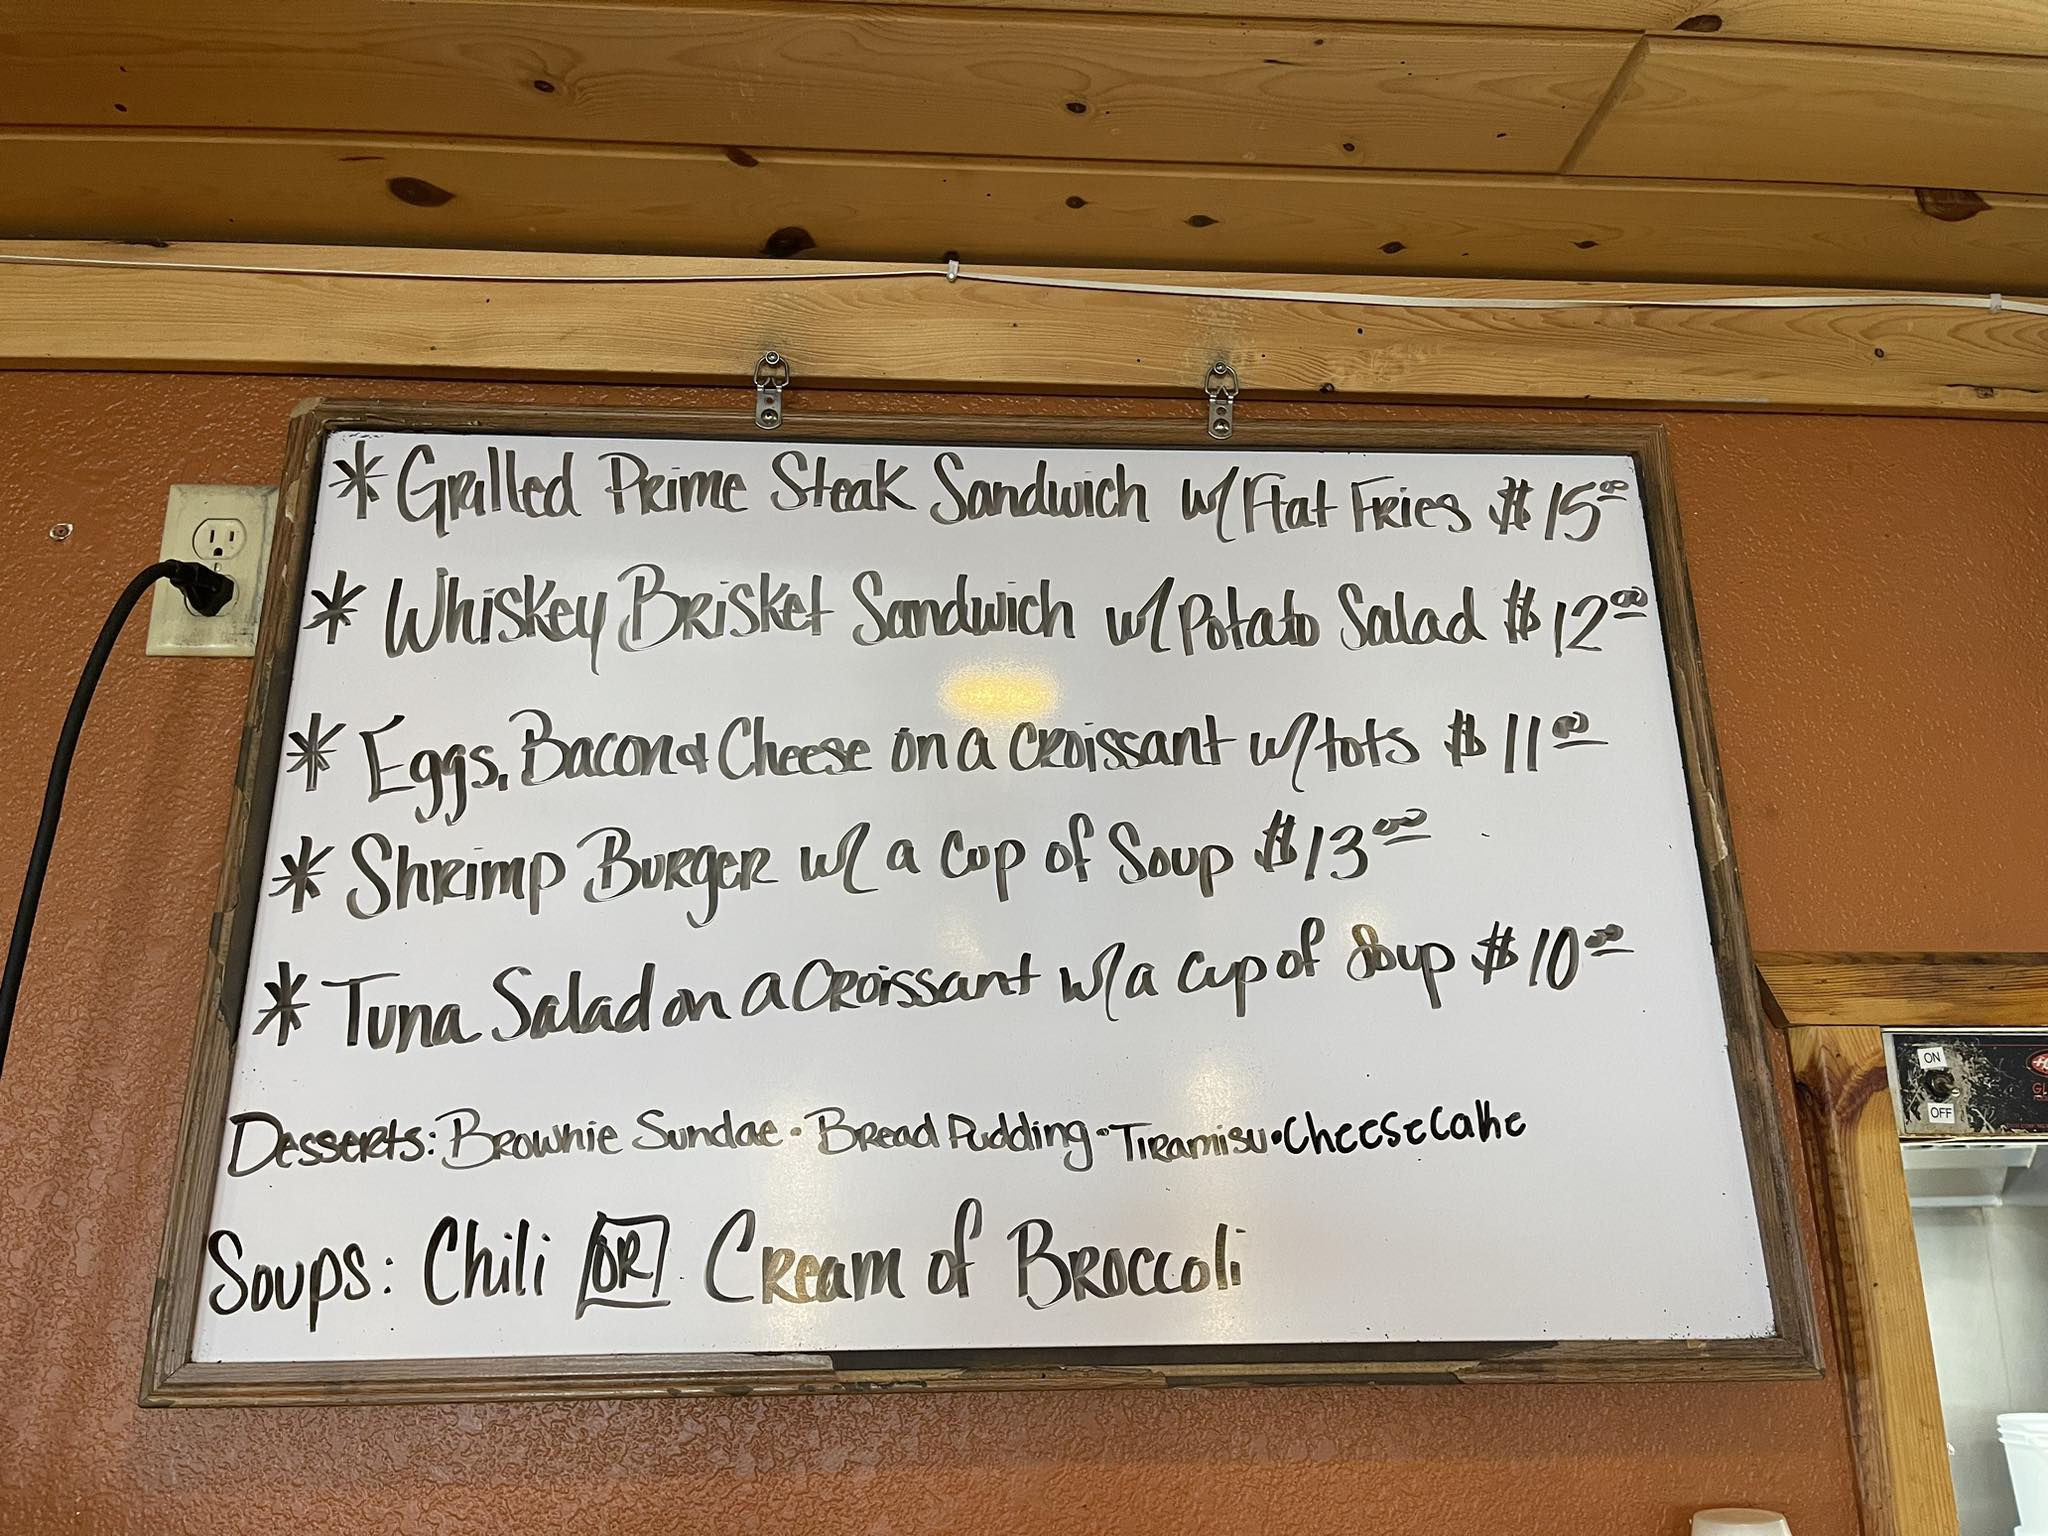 * Grilled Prime Steak Sandwich w/ Flat Fries $15.00
* Whiskey Brisket Sandwich w/ Potato Salad $12.00
* Eggs, Bacon & Cheese on a croissant w/ tots $11.00
* Shrimp Burger w/ a cup of Soup $13.00
* Tuna Salad on a croissant w/ a cup of Soup $10.00
Desserts: Brownie Sundae • Bread Pudding • Tiramisu • Cheesecake
Soups: Chili OR Cream of Broccoli
ON
OFF